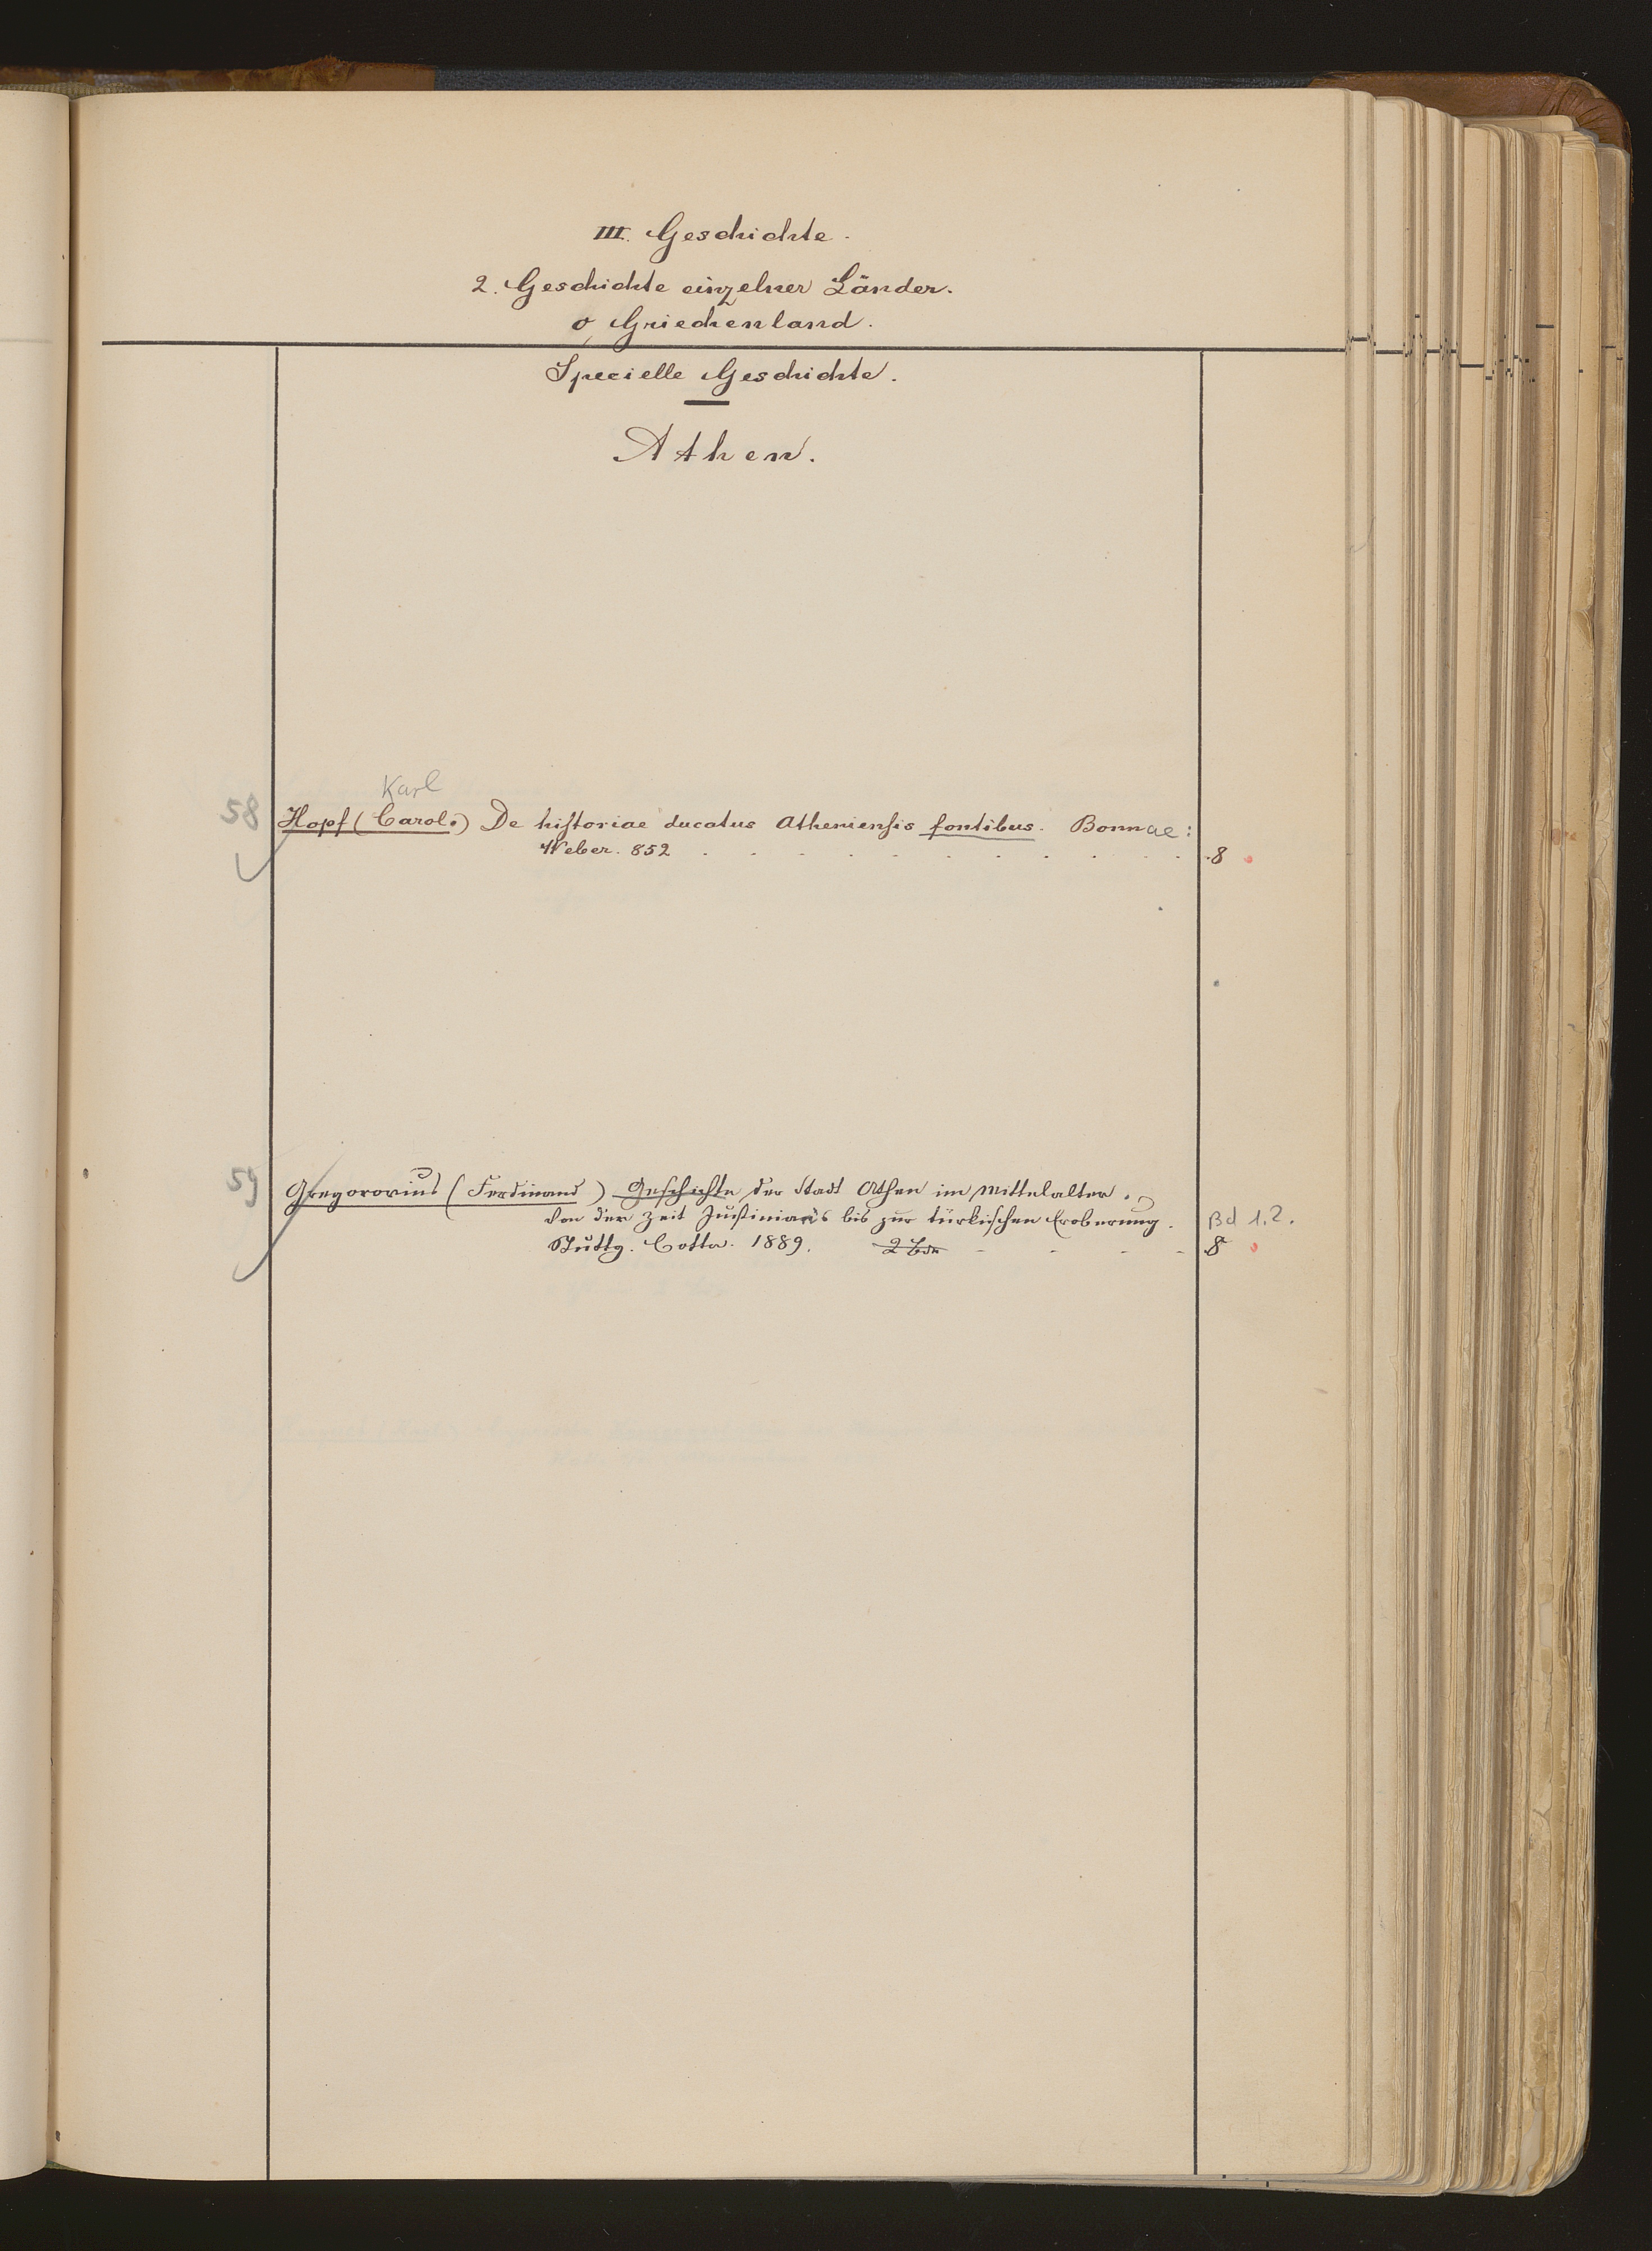 III. Geschichte.
2. Geschichte einzelner Länder.
o, Griechenland.
Specielle Geschichte.
Athen.
Karl
58 Hopf (Carol.) De historiae ducatus Atheniensis fontibus. Bonnae:
Weber. 852 . . . . . . . . . . . 8
59 Gregorovius (Ferdinand) Geschichte der Stadt Athen im Mittelalter.
Von der Zeit Justinian's bis zur türkischen Eroberung. Bd 1.2.
Stuttg. Cotta. 1889. 2 Bde - - - - 8